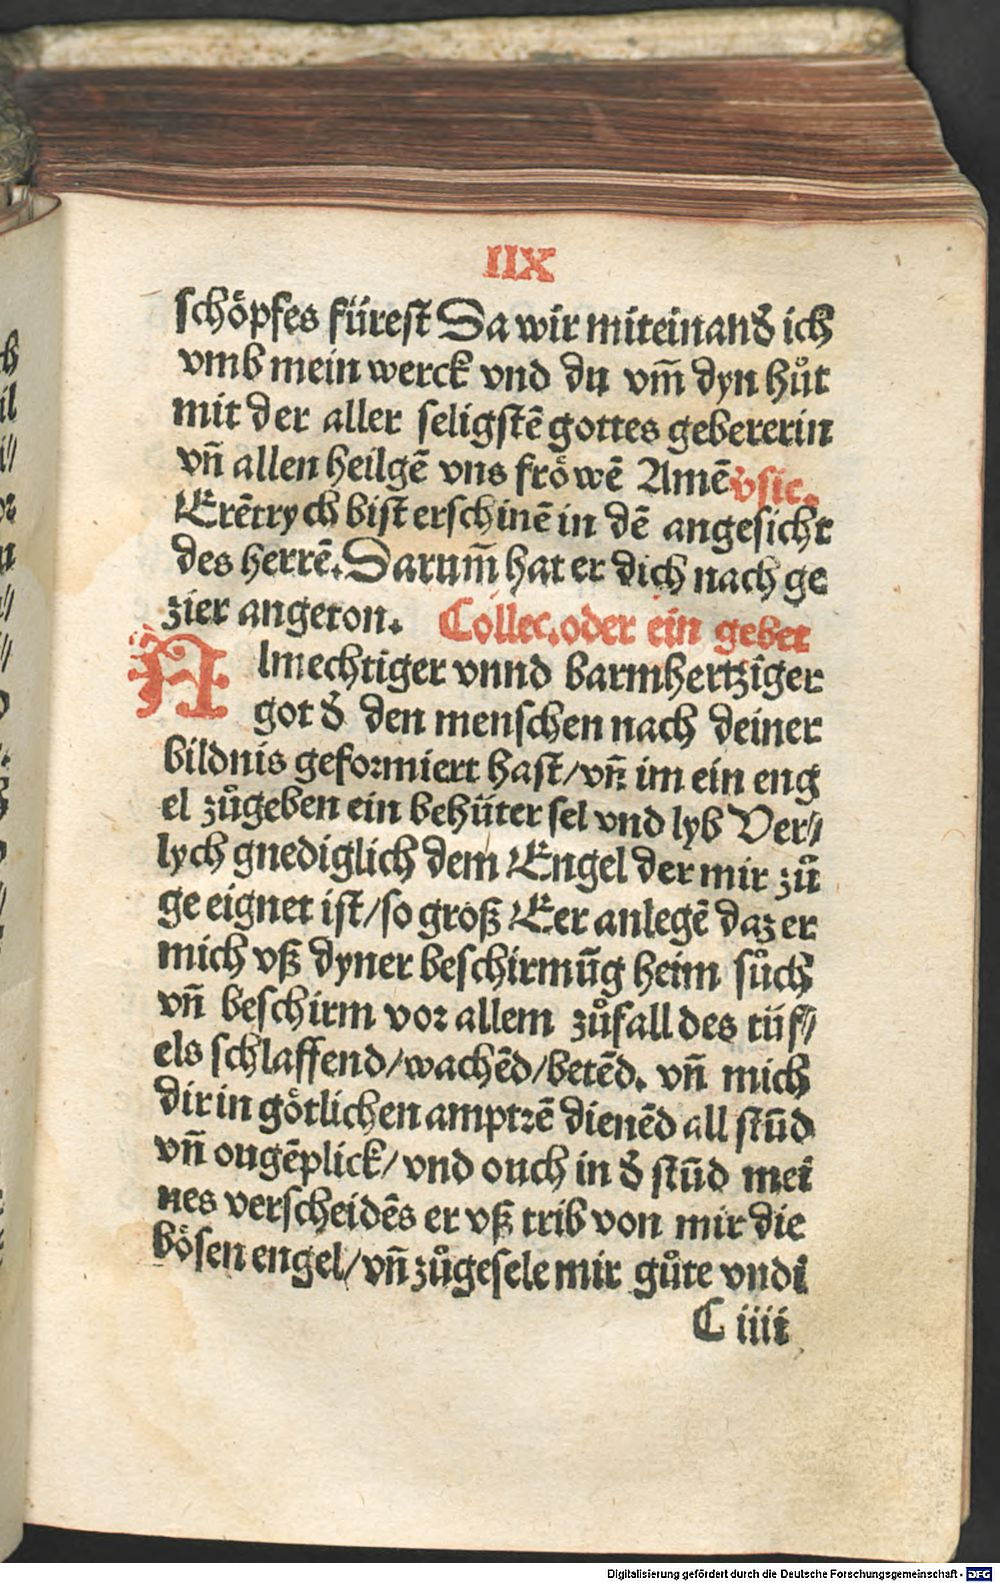 IIX
schoͤpfes fürest Da wir miteinand̕ ich
vmb mein werck vnd du vm̄ dyn huͦt
mit der aller seligstē gottes gebererin
vn̄ allen heilgē vns froͤwē Amē v̕sic.
Erētrych bist erschinē in dē angesicht
des herrē. Darum̄ hat er dich nach ge
zier angeton. Collec. oder ein gebet
Almechtiger vnnd barmhertziger
got d̕ den menschen nach deiner
bildnis geformiert hast/ vn̄ im ein eng
el zuͦgeben ein behüter sel vnd lyb Ver⸗
lych gnediglich dem Engel der mir zuͦ
ge eignet ist/ so groß Eer anlegē daz er
mich vß dyner beschirmūg heim suͦch
vn̄ beschirm vor allem zuͦfall des tüf⸗
els schlaffend/ wachēd/ betēd. vn̄ mich
dir in goͤtlichen amptzē dienēd all stūd
vn̄ ougēplick/ vnd ouch in d̕ stūd mei
nes verscheidēs er vß trib von mir die
boͤsen engel/ vn̄ zuͦgesele mir guͦte vndi
C iiii
Digitalisierung gefördert durch die Deutsche Forschungsgemeinschaft - DFG